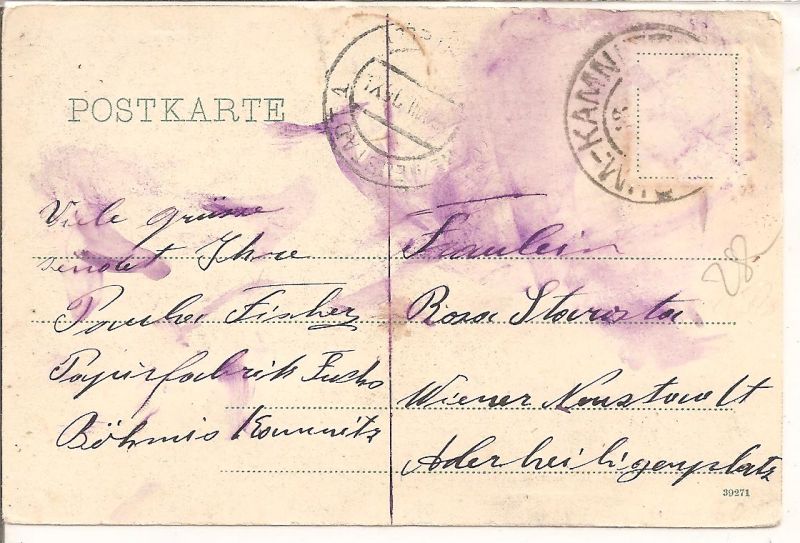 POSTKARTE
Viele grüsse
sendet Ihre
Fischer
Papirfabrik Fuchs
Böhmis Kamnitz
Fräulein
Rosa Starosta
Wiener Neustadt
Aderheiligenplatz
28
39271